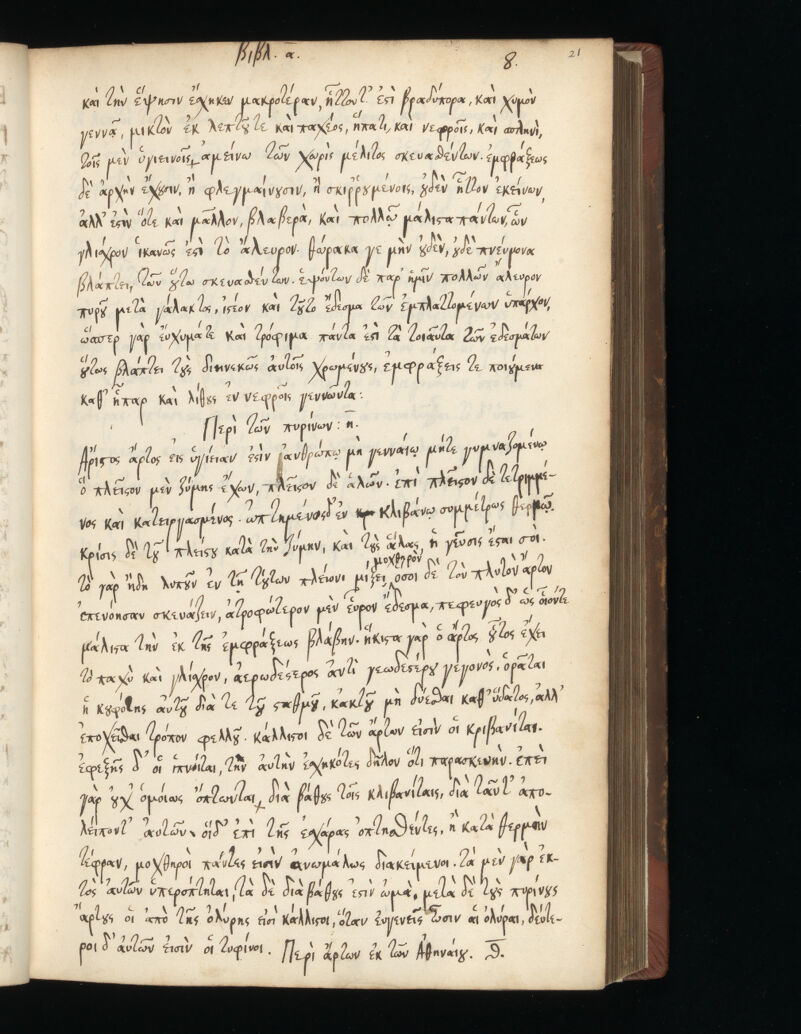 βιβλ. α. 8. 21
καὶ τὴν ἕψησιν ἔσχηκεν μακροτέραν, ἧττόντ' ἐστὶ βραδύπορα, καὶ χυμὸν
γεννᾷ, μικτὸν ἐκ λεπτοῦ τε καὶ παχέος, ἥπατι, καὶ νεφροῖς, καὶ σπληνὶ,
τοῖς μὲν ὑγιεινοῖς, ἀμείνω τῶν χωρὶς μέλιτος σκευασθέντων. ἐμφράξεως
δὲ ἀρχὴν ἔχουσιν, ἢ φλεγμαίνουσιν, ἢ σκιῤῥουμένοις, οὐδὲν ἧττον ἐκείνων,
ἀλλ' ἐστὶν ὅτε καὶ μᾶλλον, βλαβερὰ, καὶ πολλῷ μάλιστα πάντων, ὧν
γλίσχρον ἱκανῶς ἐστὶ τὸ ἄλευρον. θώρακα γε μὴν οὐδὲν, οὐδὲ πνεύμονα
βλάπτει, τῶν οὕτω σκευασθέντων. ἑψόντων δὲ παρ' ἡμῖν πολλῶν ἄλευρον
πυροῦ μετὰ γάλακτος, ἰστέον καὶ τοῦτο ἔδεσμα τῶν ἐμπλαττομένων ὑπάρχον,
ὥσπερ γὰρ εὔχυμά τε καὶ τρόφιμα πάντα ἐστὶ τὰ τοιαῦτα τῶν ἐδεσμάτων
οὕτως βλάπτει τοὺς διηνεκῶς αὐτοῖς χρωμένους, ἐμφράξεις τε ποιούμενα
καθ' ἧπαρ καὶ λίθους ἐν νεφροῖς γεννῶντα:
Περὶ τῶν πυρίνων: η.
Ἄριστος ἄρτος εἰς ὑγίειαν ἐστὶν ἀνθρώπῳ μὴ γενναίῳ μήτε γυμναζομένῳ
ὁ πλεῖστον μὲν ζύμης ἔχων, πλεῖστον δὲ ἁλῶν. ἐπὶ πλεῖστον δὲ τετριμμέ-
νος καὶ κατειργασμένος. ὠπτημένος δ' ἐν κλιβάνῳ συμμέτρως θερμῷ.
κρίσις δὲ τοῦ πλείστου κατὰ τὴν ζύμην, καὶ τοὺς ἅλας, ἡ γεῦσις ἔσται σοι.
τὸ γὰρ ἤδη λυποῦν ἐν τῇ τούτων πλείονι μίξει, μοχθηρὸν ὅσοι δὲ τὸν πλυτὸν ἄρτον
ἐπενόησαν σκευάζειν, ἀτροφώτερον μὲν εὗρον ἔδεσμα, πεφευγὸς δ' ὡς οἷόν τε
μάλιστα τὴν ἐκ τῆς ἐμφράξεως βλάβην. ἥκιστα γὰρ ὁ ἄρτος οὗτος ἔχει
τὸ παχὺ καὶ γλίσχρον, ἀερωδέστερος ἀντὶ γεωδεστέρου γεγονὸς. ὁρᾶται
ἡ κουφότης αὐτοῦ διά τε τοῦ σταθμοῦ, κἀκ τοῦ μὴ δύεσθαι καθ' ὕδατος, ἀλλ'
ἐποχεῖσθαι τρόπον φελλοῦ. κάλλιστοι δὲ τῶν ἄρτων εἰσὶν οἱ κριβανίται.
ἐφεξῆς δ' οἱ ἰπνίται, τὴν αὐτὴν ἐσχηκότες δῆλον ὅτι παρασκευὴν. ἐπεὶ
γὰρ οὐχ' ὁμοίως ὀπτῶνται, διὰ βάθους τοῖς κλιβανίταις, διὰ ταῦτ' ἀπο-
λείποντ' αὐτῶν. οἱ δ' ἐπὶ τῆς ἐσχάρας ὀπτηθέντες, ἢ κατὰ θερμὴν
τέφραν, μοχθηροὶ πάντες εἰσὶν ἀνωμάλως διακείμενοι. τὰ μὲν γὰρ ἐκ-
τὸς αὐτῶν ὑπερόπτηται, τὰ δὲ διὰ βάθους ἐστὶν ὠμὰ. μετὰ δὲ τοὺς πυρίνους
ἄρτους οἱ ἀπὸ τῆς ὀλύρης εἰσὶ κάλλιστοι, ὅταν εὐγενεῖς ὦσιν αἱ ὀλύραι, δεύτε-
ροι δ' αὐτῶν εἰσὶν οἱ τυφίνοι. Περὶ ἄρτων ἐκ τῶν Ἀθηναίου. θ.